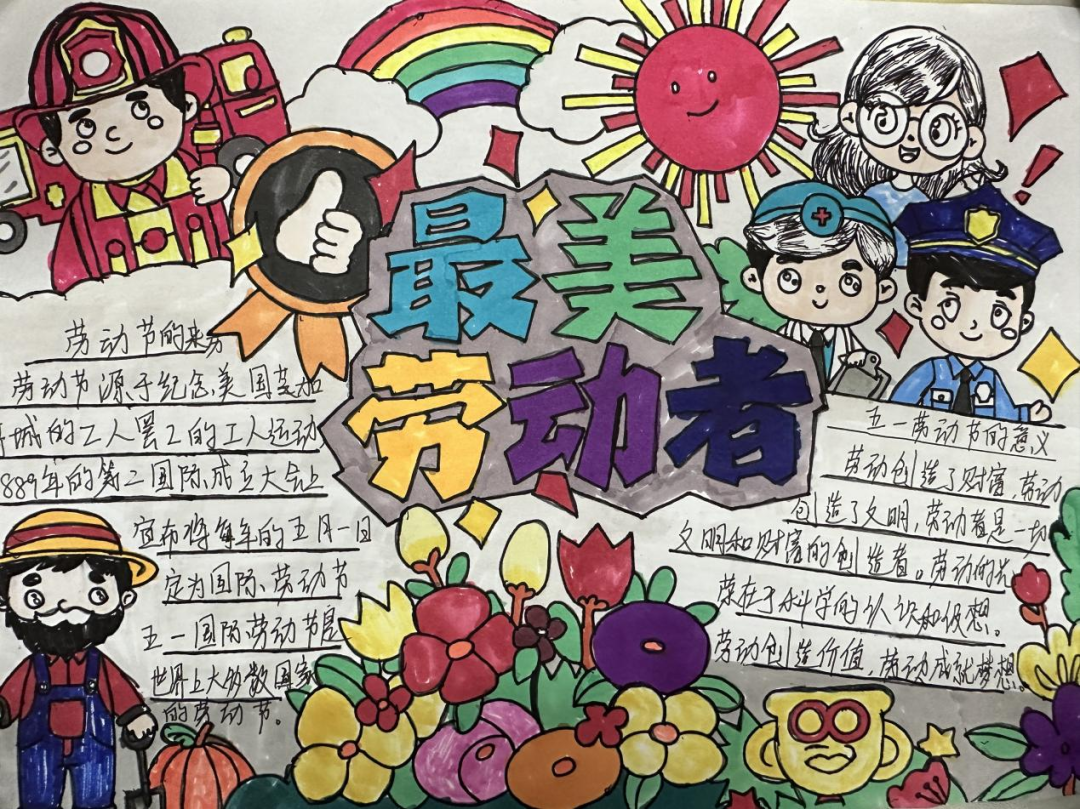 最美
劳动者
劳动节的来历
劳动节源于纪念美国芝加
哥城的工人罢工的工人运动
1889年的第二国际成立大会上
宣布将每年的五月一日
定为国际劳动节
五一国际劳动节是
世界上大多数国家
的劳动节。
五一劳动节的意义
劳动创造了财富,劳动
创造了文明,劳动者是一切
文明和财富的创造者。劳动的光
荣在于科学的认识和设想。
劳动创造价值,劳动成就梦想。